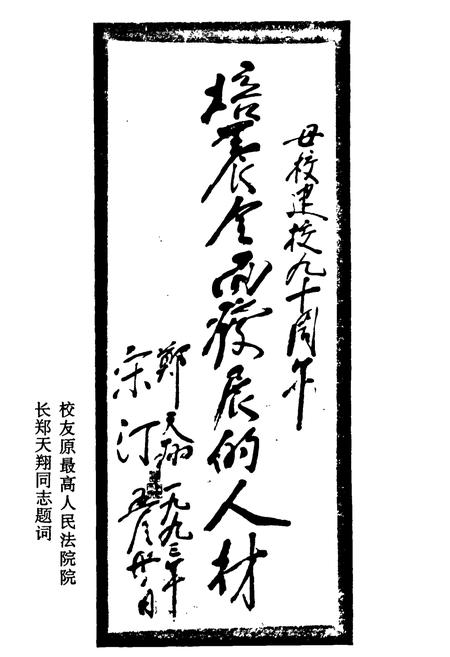 母校建校九十周年
培養全面發展的人材
鄭天翔
宋汀
一九九三年
校友原最高人民法院院
长郑天翔同志题词